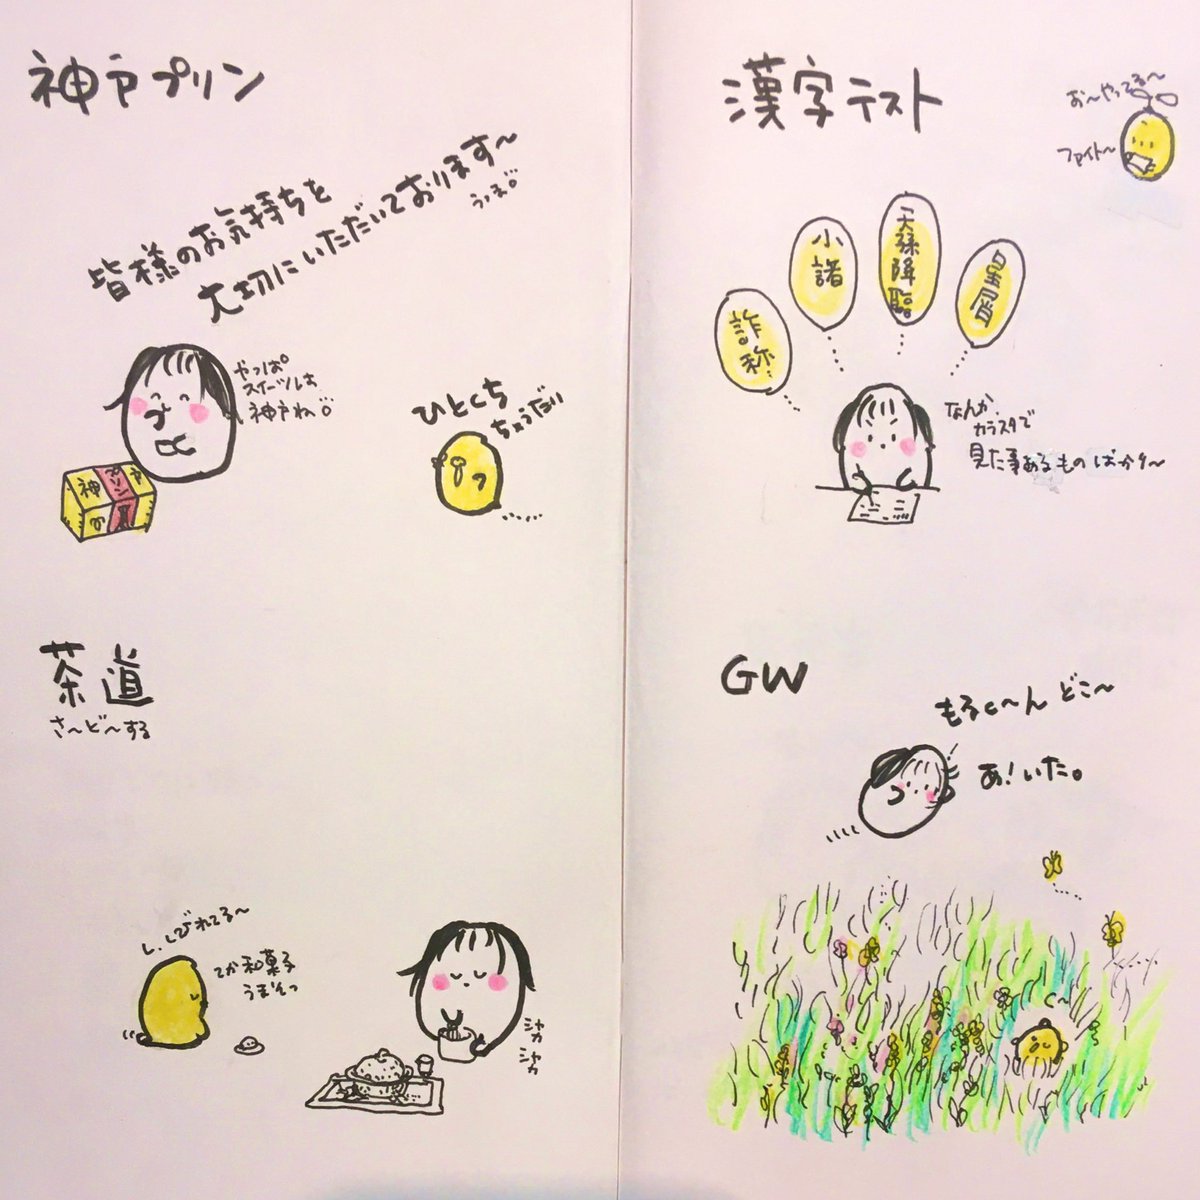 神戸プリン
皆様のお気持ちを
大切にいただいております〜
うま
やっぱ
スイーツは
神戸ね
ひとくち
ちょうだい
神戸
プリン
漢字テスト
お〜やってる〜
ファイト〜
詐称
小諸
天孫降臨
星屑
なんか
カラスタで
見た事あるものばかり〜
茶道
さ〜ど〜する
し、しびれてる〜
てか和菓子
うまそっ
シャカ
シャカ
GW
もるc〜ん どこ〜
あ!いた。